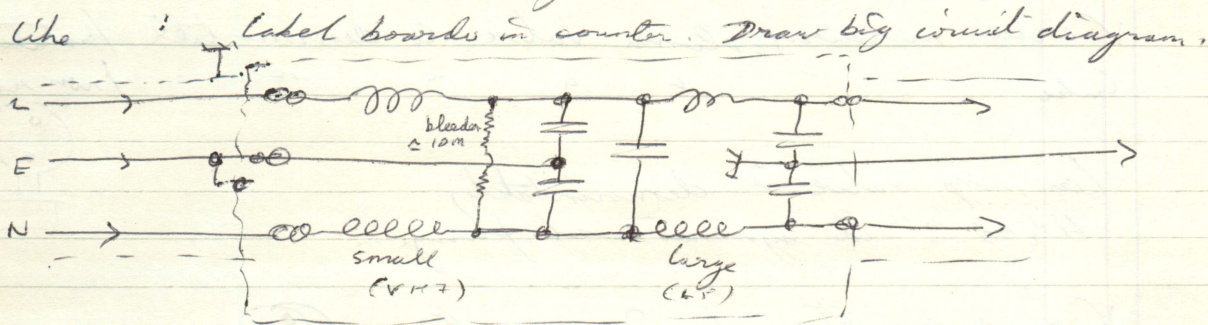 like : Label boards in counter. Draw big circuit diagram.
L
bleeder
≈ 10M
E
N
small
large
(LF)